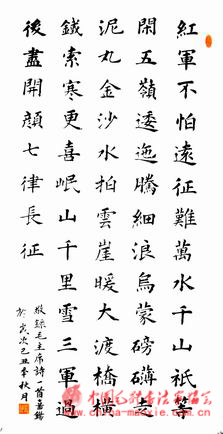 紅軍不怕遠征難萬水千山祇等
閑五嶺逶迤騰細浪烏蒙磅礴走
泥丸金沙水拍雲崖暖大渡橋橫
鐵索寒更喜岷山千里雪三軍過
後盡開顏七律長征
敬錄毛主席詩一首
於歲次己丑年秋月